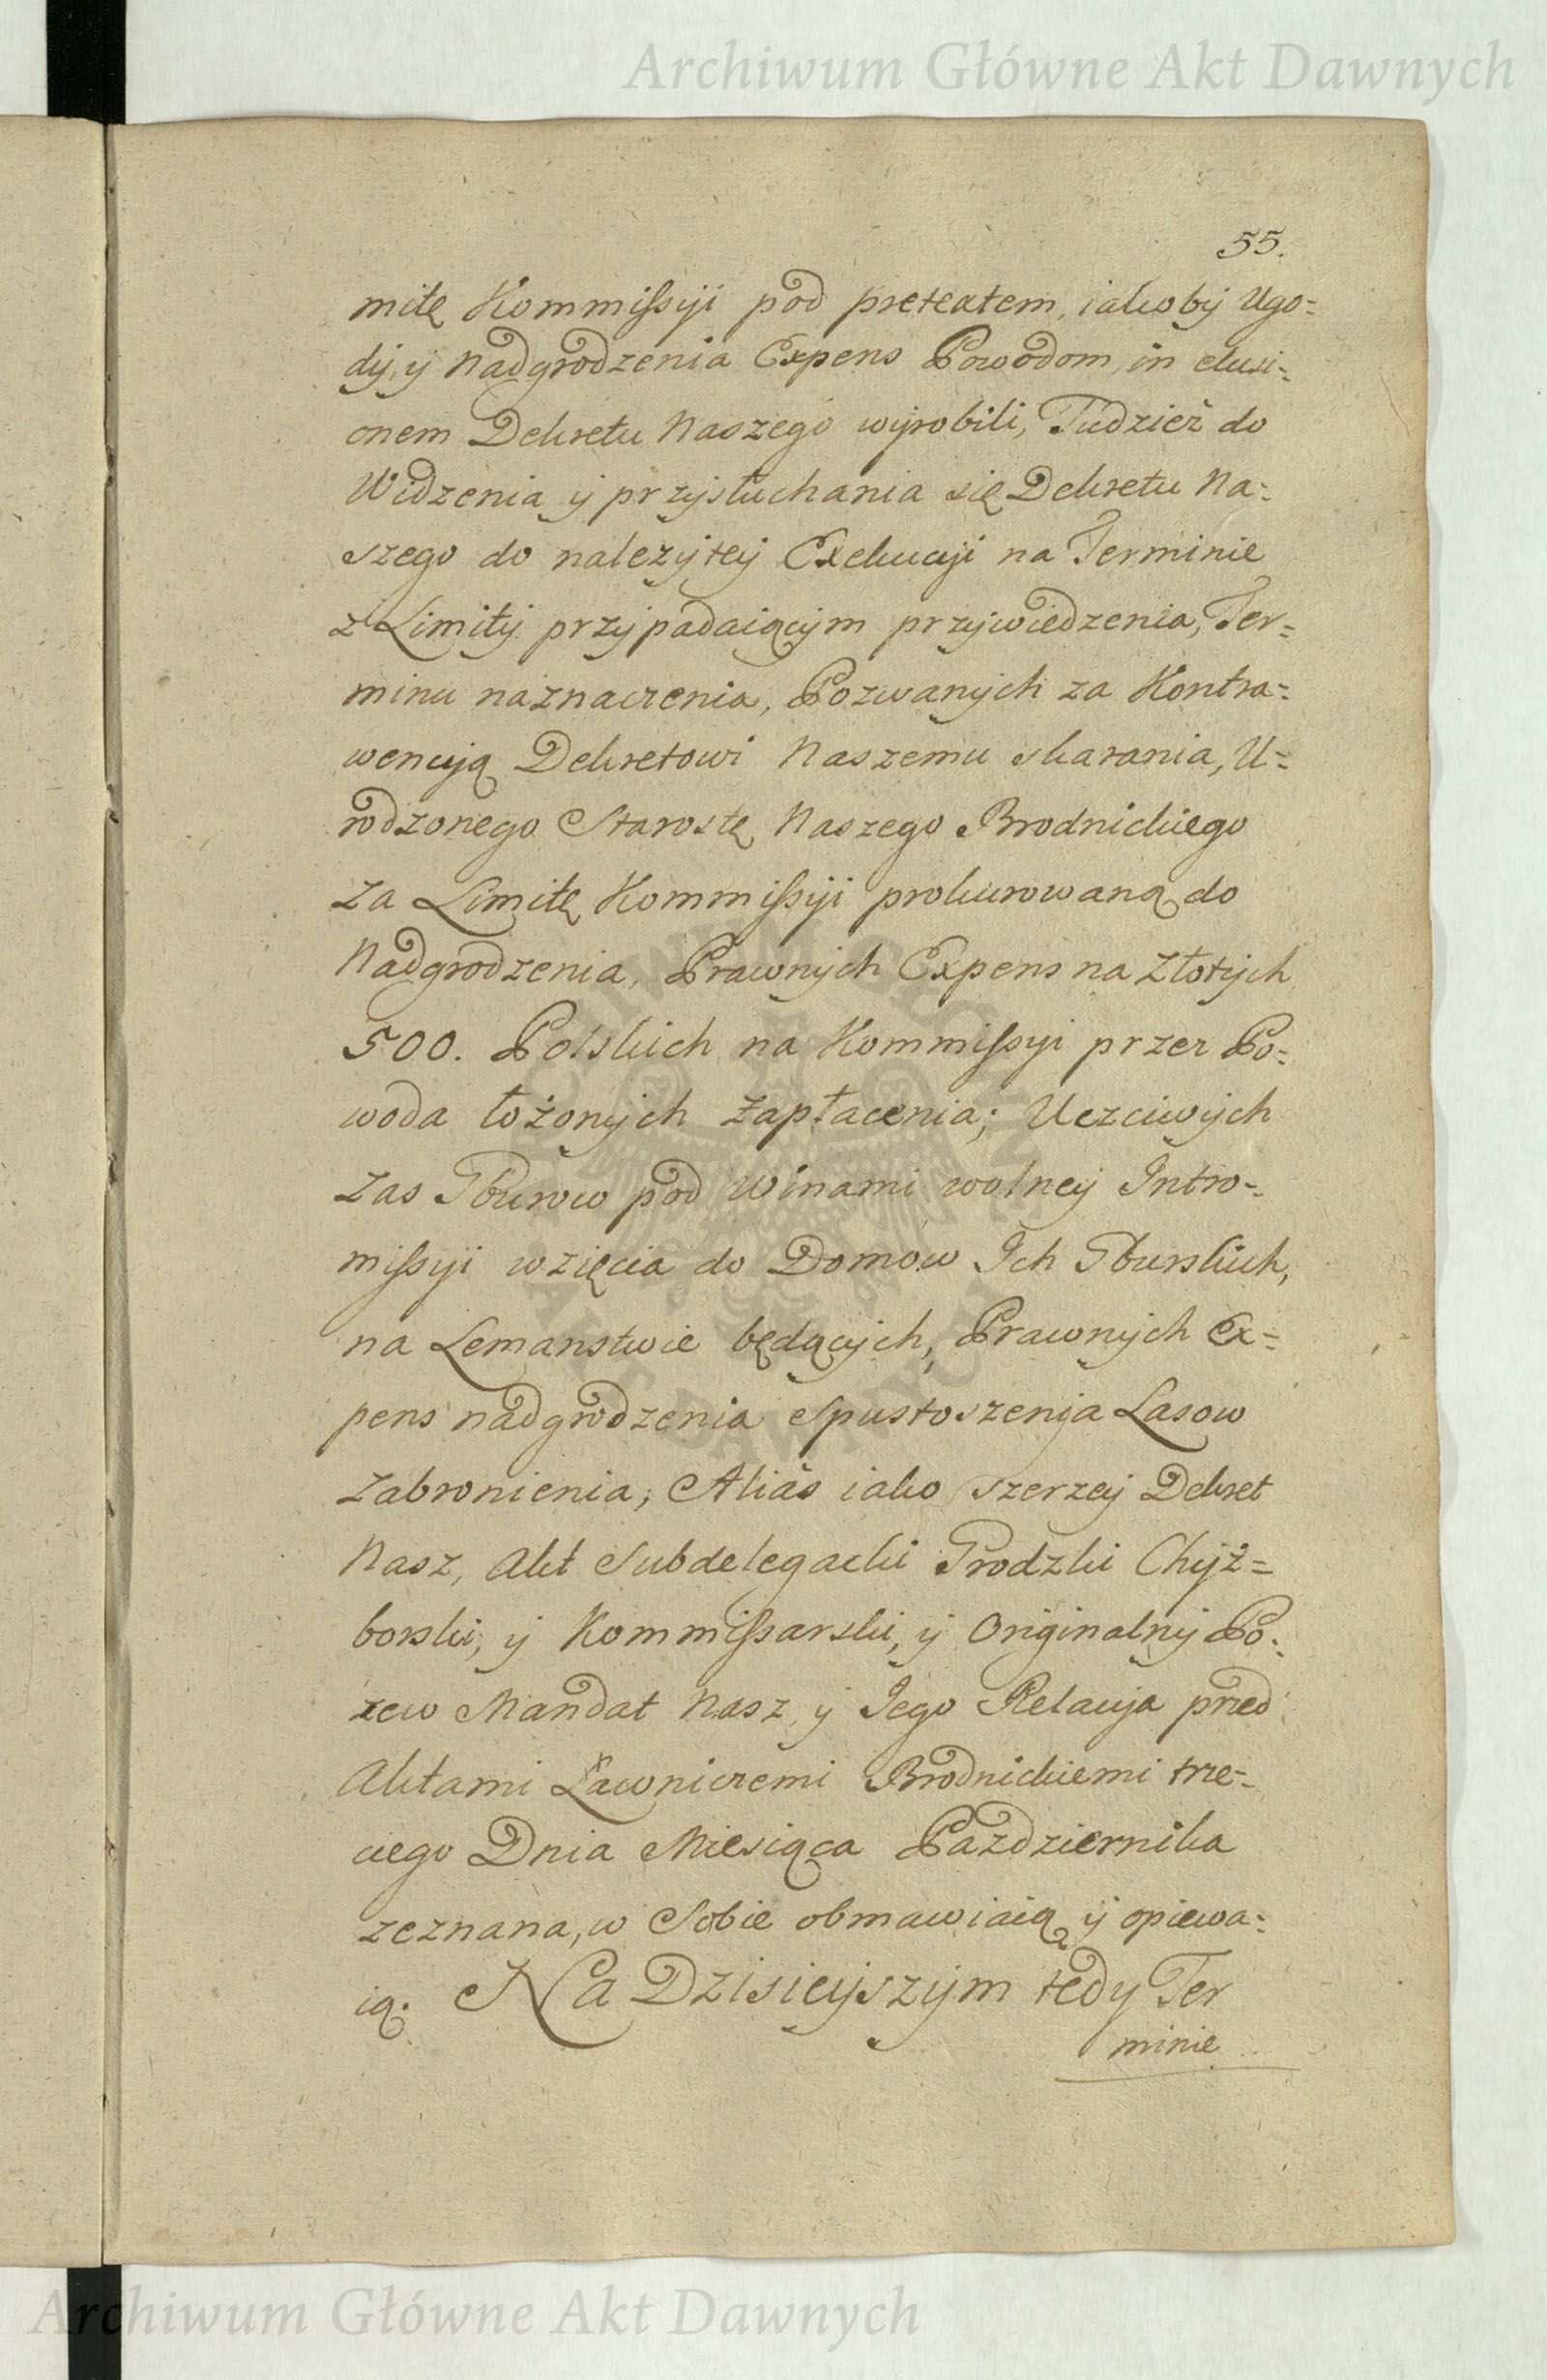 Archiwum Główne Akt Dawnych
55.
mitę Kommissyi pod pretextem, iakoby Ugo=
dy, y Nadgrodzenia Expens Powodom, in elusi=
onem Dekretu Naszego wyrobili, Tudzież do
Widzenia y przysłuchania się Dekretu Na=
szego do nalezytey Exekucyi na Terminie
z Limity przypadaiącym przywiedzenia, Ter=
minu naznaczenia, Pozwanych za Kontra=
wencyą Dekretowi Naszemu skarania, U=
rodzonego Starostę Naszego Brodnickiego
za Limitę Kommissyi prokurowaną do
Nadgrodzenia, Prawnych Expens na Złotych
500. Polskich na Kommissyi przez Po=
woda łożonych zapłacenia; Uczciwych
zas Gburow pod Winami wolney Intro=
missyi wzięcia do Domow Ich Gburskich,
na Lemanstwie będących, Prawnych Ex=
pens nadgrodzenia Spustoszenia Lasow
zabronienia, Aliàs iako szerzey Dekret
Nasz, Akt Subdelegacki Grodzki Chyż=
borski, y Kommissarski, y Originalny Po=
zew Mandat Nasz, y Jego Relacyja przed
Aktami Ławniczemi Brodnickiemi trze=
ciego Dnia Miesiąca Pazdziernika
zeznana, w Sobie obmawiaią y opiewa=
ią. Na Dzisieyszym tedy Ter
minie
Archiwum Główne Akt Dawnych